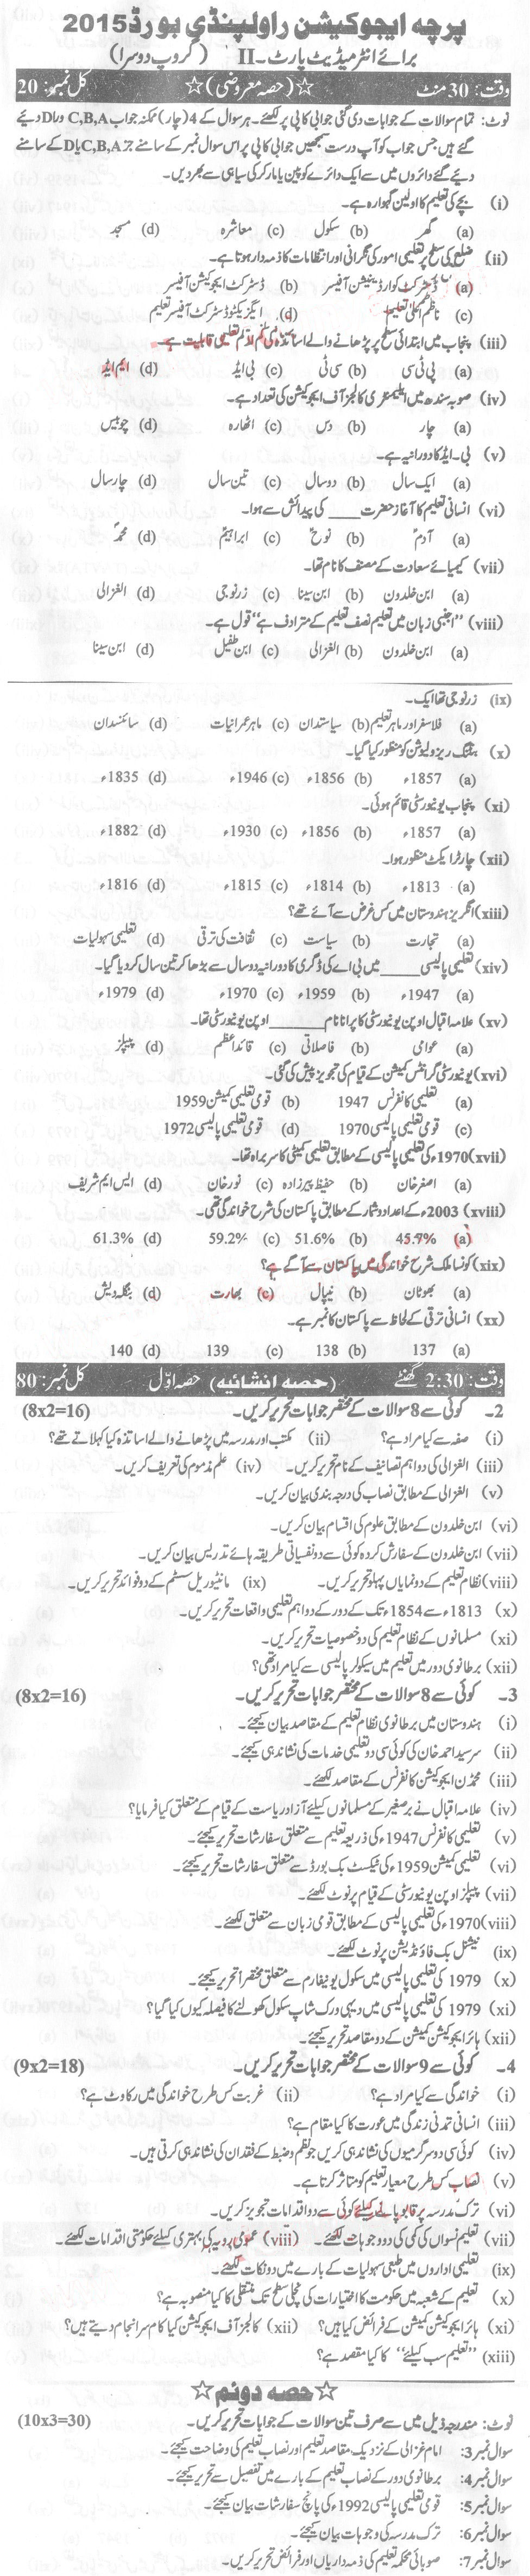 پرچہ ایجوکیشن راولپنڈی بورڈ 2015
برائے انٹرمیڈیٹ پارٹ۔ II (گروپ دوسرا)
وقت: 30 منٹ ☆(حصہ معروضی)☆ کل نمبر: 20
نوٹ: تمام سوالات کے جوابات دی گئی جوابی کاپی پر لکھئے۔ ہر سوال کے 4 (چار) ممکنہ جواب C,B,A اور D دیئے
گئے ہیں جس جواب کو آپ درست سمجھیں جوابی کاپی پر اس سوال نمبر کے سامنے C,B,A یا D کے سامنے
دیئے گئے دائروں میں سے ایک دائرے کو پین یا مارکر کی سیاہی سے بھر دیں۔
(i) بچے کی تعلیم کا اولین گہوارہ ہے۔
(a) گھر (b) سکول (c) معاشرہ (d) مسجد
(ii) ضلع کی سطح پر تعلیمی امور کی نگرانی اور انتظامات کا ذمہ دار ہوتا ہے۔
(a) ڈسٹرکٹ کوارڈینیشن آفیسر (b) ڈسٹرکٹ ایجوکیشن آفیسر
(c) ناظم اعلیٰ تعلیم (d) ایگزیکٹو ڈسٹرکٹ آفیسر تعلیم
(iii) پنجاب میں ابتدائی سطح پر پڑھانے والے اساتذہ کی کم از کم تعلیمی قابلیت ہے۔
(a) پی ٹی سی (b) سی ٹی (c) بی ایڈ (d) ایم ایڈ
(iv) صوبہ سندھ میں ایلیمنٹری کالجز آف ایجوکیشن کی تعداد ہے۔
(a) چار (b) دس (c) اٹھارہ (d) چوبیس
(v) بی۔ ایڈ کا دورانیہ ہے۔
(a) ایک سال (b) دو سال (c) تین سال (d) چار سال
(vi) انسانی تعلیم کا آغاز حضرت ____ کی پیدائش سے ہوا۔
(a) آدمؑ (b) نوحؑ (c) ابراہیمؑ (d) محمدؐ
(vii) کیمیائے سعادت کے مصنف کا نام تھا۔
(a) ابن خلدون (b) ابن سینا (c) زرنوجی (d) الغزالی
(viii) "اجنبی زبان میں تعلیم نصف تعلیم کے مترادف ہے" قول ہے۔
(a) ابن خلدون (b) الغزالی (c) ابن طفیل (d) ابن سینا
(ix) زرنوجی تھا ایک۔
(a) فلاسفر اور ماہر تعلیم (b) سیاستدان (c) ماہر عمرانیات (d) سائنسدان
(x) بنٹنگ ریزولیوشن کو منظور کیا گیا۔
(a) 1857ء (b) 1856ء (c) 1946ء (d) 1835ء
(xi) پنجاب یونیورسٹی قائم ہوئی۔
(a) 1857ء (b) 1856ء (c) 1930ء (d) 1882ء
(xii) چارٹر ایکٹ منظور ہوا۔
(a) 1813ء (b) 1814ء (c) 1815ء (d) 1816ء
(xiii) انگریز ہندوستان میں کس غرض سے آئے تھے؟
(a) تجارت (b) سیاست (c) ثقافت کی ترقی (d) تعلیمی سہولیات
(xiv) تعلیمی پالیسی ____ میں بی اے کی ڈگری کا دورانیہ دو سال سے بڑھا کر تین سال کر دیا گیا۔
(a) 1947ء (b) 1959ء (c) 1970ء (d) 1979ء
(xv) علامہ اقبال اوپن یونیورسٹی کا پرانا نام ____ اوپن یونیورسٹی تھا۔
(a) عوامی (b) فاصلاتی (c) قائد اعظم (d) پیپلز
(xvi) یونیورسٹی گرانٹس کمیشن کے قیام کی تجویز پیش کی گئی۔
(a) تعلیمی کانفرنس 1947 (b) قومی تعلیمی کمیشن 1959
(c) قومی تعلیمی پالیسی 1970 (d) قومی تعلیمی پالیسی 1972
(xvii) 1970ء کی تعلیمی پالیسی کے مطابق تعلیمی کمیٹی کا سربراہ تھا۔
(a) اصغر خان (b) حفیظ پیرزادہ (c) نور خان (d) ایس ایم شریف
(xviii) 2003ء کے اعداد و شمار کے مطابق پاکستان کی شرح خواندگی تھی۔
(a) 45.7% (b) 51.6% (c) 59.2% (d) 61.3%
(xix) کونسا ملک شرح خواندگی میں پاکستان سے آگے ہے؟
(a) بھوٹان (b) نیپال (c) بھارت (d) بنگلہ دیش
(xx) انسانی ترقی کے لحاظ سے پاکستان کا نمبر ہے۔
(a) 137 (b) 138 (c) 139 (d) 140
وقت: 2:30 گھنٹے (حصہ انشائیہ) حصہ اول کل نمبر: 80
2۔ کوئی سے 8 سوالات کے مختصر جوابات تحریر کریں۔ (8x2=16)
(i) صفہ سے کیا مراد ہے؟ (ii) مکتب اور مدرسہ میں پڑھانے والے اساتذہ کیا کہلاتے تھے؟
(iii) الغزالی کی دو اہم تصانیف کے نام تحریر کریں۔ (iv) علم مذموم کی تعریف کریں۔
(v) الغزالی کے مطابق نصاب کی درجہ بندی بیان کریں۔
(vi) ابن خلدون کے مطابق علوم کی اقسام بیان کریں۔
(vii) ابن خلدون کے سفارش کردہ کوئی سے دو نفسیاتی طریقہ ہائے تدریس بیان کریں۔
(viii) نظام تعلیم کے دو نمایاں پہلو تحریر کریں۔ (ix) مانیٹوریل سسٹم کے دو فوائد تحریر کریں۔
(x) 1813ء سے 1854ء تک کے دور کے دو اہم تعلیمی واقعات تحریر کریں۔
(xi) مسلمانوں کے نظام تعلیم کی دو خصوصیات تحریر کریں۔
(xii) برطانوی دور میں تعلیم میں سیکولر پالیسی سے کیا مراد تھی؟
3۔ کوئی سے 8 سوالات کے مختصر جوابات تحریر کریں۔ (8x2=16)
(i) ہندوستان میں برطانوی نظام تعلیم کے مقاصد بیان کیجئے۔
(ii) سر سید احمد خان کی کوئی سی دو تعلیمی خدمات کی نشاندہی کیجئے۔
(iii) محمڈن ایجوکیشن کانفرنس کے مقاصد لکھئے۔
(iv) علامہ اقبال نے برصغیر کے مسلمانوں کیلئے آزاد ریاست کے قیام کے متعلق کیا فرمایا؟
(v) تعلیمی کانفرنس 1947ء کی ذریعہ تعلیم سے متعلق سفارشات تحریر کیجئے۔
(vi) تعلیمی کمیشن 1959ء کی ٹیکسٹ بک بورڈ سے متعلق سفارشات تحریر کیجئے۔
(vii) پیپلز اوپن یونیورسٹی کے قیام پر نوٹ لکھئے۔
(viii) 1970ء کی تعلیمی پالیسی کے مطابق قومی زبان سے متعلق لکھئے۔
(ix) نیشنل بک فاؤنڈیشن پر نوٹ لکھئے۔
(x) 1979 کی تعلیمی پالیسی میں سکول یونیفارم سے متعلق مختصراً تحریر کیجئے۔
(xi) 1979 کی تعلیمی پالیسی میں دیہی ورک شاپ سکول کھولنے کا فیصلہ کیوں کیا گیا؟
(xii) ہائر ایجوکیشن کمیشن کے دو مقاصد تحریر کیجئے۔
4۔ کوئی سے 9 سوالات کے مختصر جوابات تحریر کریں۔ (9x2=18)
(i) خواندگی سے کیا مراد ہے؟ (ii) غربت کس طرح خواندگی میں رکاوٹ ہے؟
(iii) انسانی تمدنی زندگی میں عورت کا کیا مقام ہے؟
(iv) کوئی سی دو سرگرمیوں کی نشاندہی کریں جو نظم و ضبط کے فقدان کی نشاندہی کرتی ہیں۔
(v) نصاب کس طرح معیار تعلیم کو متاثر کرتا ہے۔
(vi) ترک مدرسہ پر قابو پانے کیلئے کوئی سے دو اقدامات تجویز کریں۔
(vii) تعلیم نسواں کی کمی کی دو وجوہات لکھئے۔ (viii) عمومی رویہ کی بہتری کیلئے حکومتی اقدامات لکھئے۔
(ix) تعلیمی اداروں میں طبعی سہولیات کے بارے میں دو نکات لکھئے۔
(x) تعلیم کے شعبہ میں حکومت کا اختیارات کی نچلی سطح تک منتقلی کا کیا منصوبہ ہے؟
(xi) ہائر ایجوکیشن کمیشن کے فرائض کیا ہیں؟ (xii) کالجز آف ایجوکیشن کیا کام سر انجام دیتے ہیں؟
(xiii) "تعلیم سب کیلئے" کا کیا مقصد ہے؟
☆حصہ دوئم☆
نوٹ: مندرجہ ذیل میں سے صرف تین سوالات کے جوابات تحریر کریں۔ (10x3=30)
سوال نمبر 3: امام غزالی کے نزدیک، مقاصد تعلیم اور نصاب تعلیم کی وضاحت کیجئے۔
سوال نمبر 4: برطانوی دور کے نصاب تعلیم کے بارے میں تفصیل سے تحریر کیجئے۔
سوال نمبر 5: قومی تعلیمی پالیسی 1992ء کی پانچ سفارشات بیان کیجئے۔
سوال نمبر 6: ترک مدرسہ کی وجوہات بیان کیجئے۔
سوال نمبر 7: صوبائی محکمہ تعلیم کی ذمہ داریاں اور فرائض تحریر کریں۔